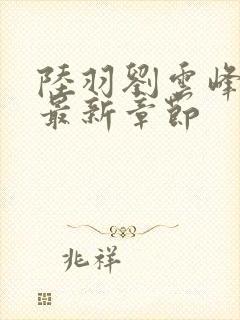 陸羽劉雲峰
最新章節
兆祥